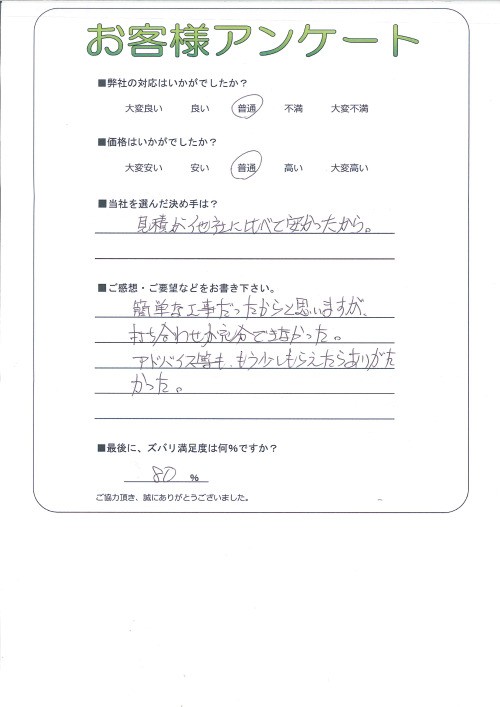 お客様アンケート
■弊社の対応はいかがでしたか？
大変良い 良い 普通 不満 大変不満
■価格はいかがでしたか？
大変安い 安い 普通 高い 大変高い
■当社を選んだ決め手は？
見積が他社に比べて安かったから。
■ご感想・ご要望などをお書き下さい。
簡単な工事だったからと思いますが、
打ち合わせが充分できなかった。
アドバイス等も、もう少しもらえたらありがた
かった。
■最後に、ズバリ満足度は何%ですか？
80 %
ご協力頂き、誠にありがとうございました。